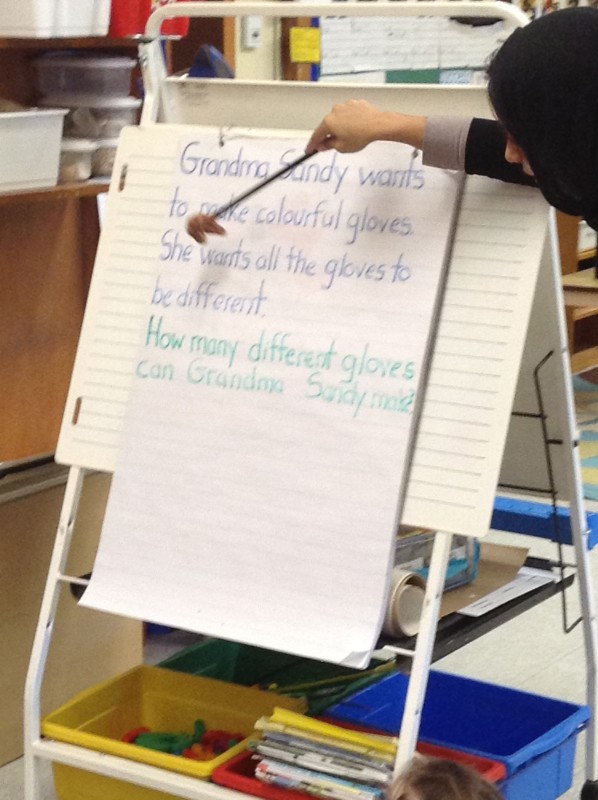 Grandma Sandy wants
to make colourful gloves.
She wants all the gloves to
be different.
How many different gloves
can Grandma Sandy make?